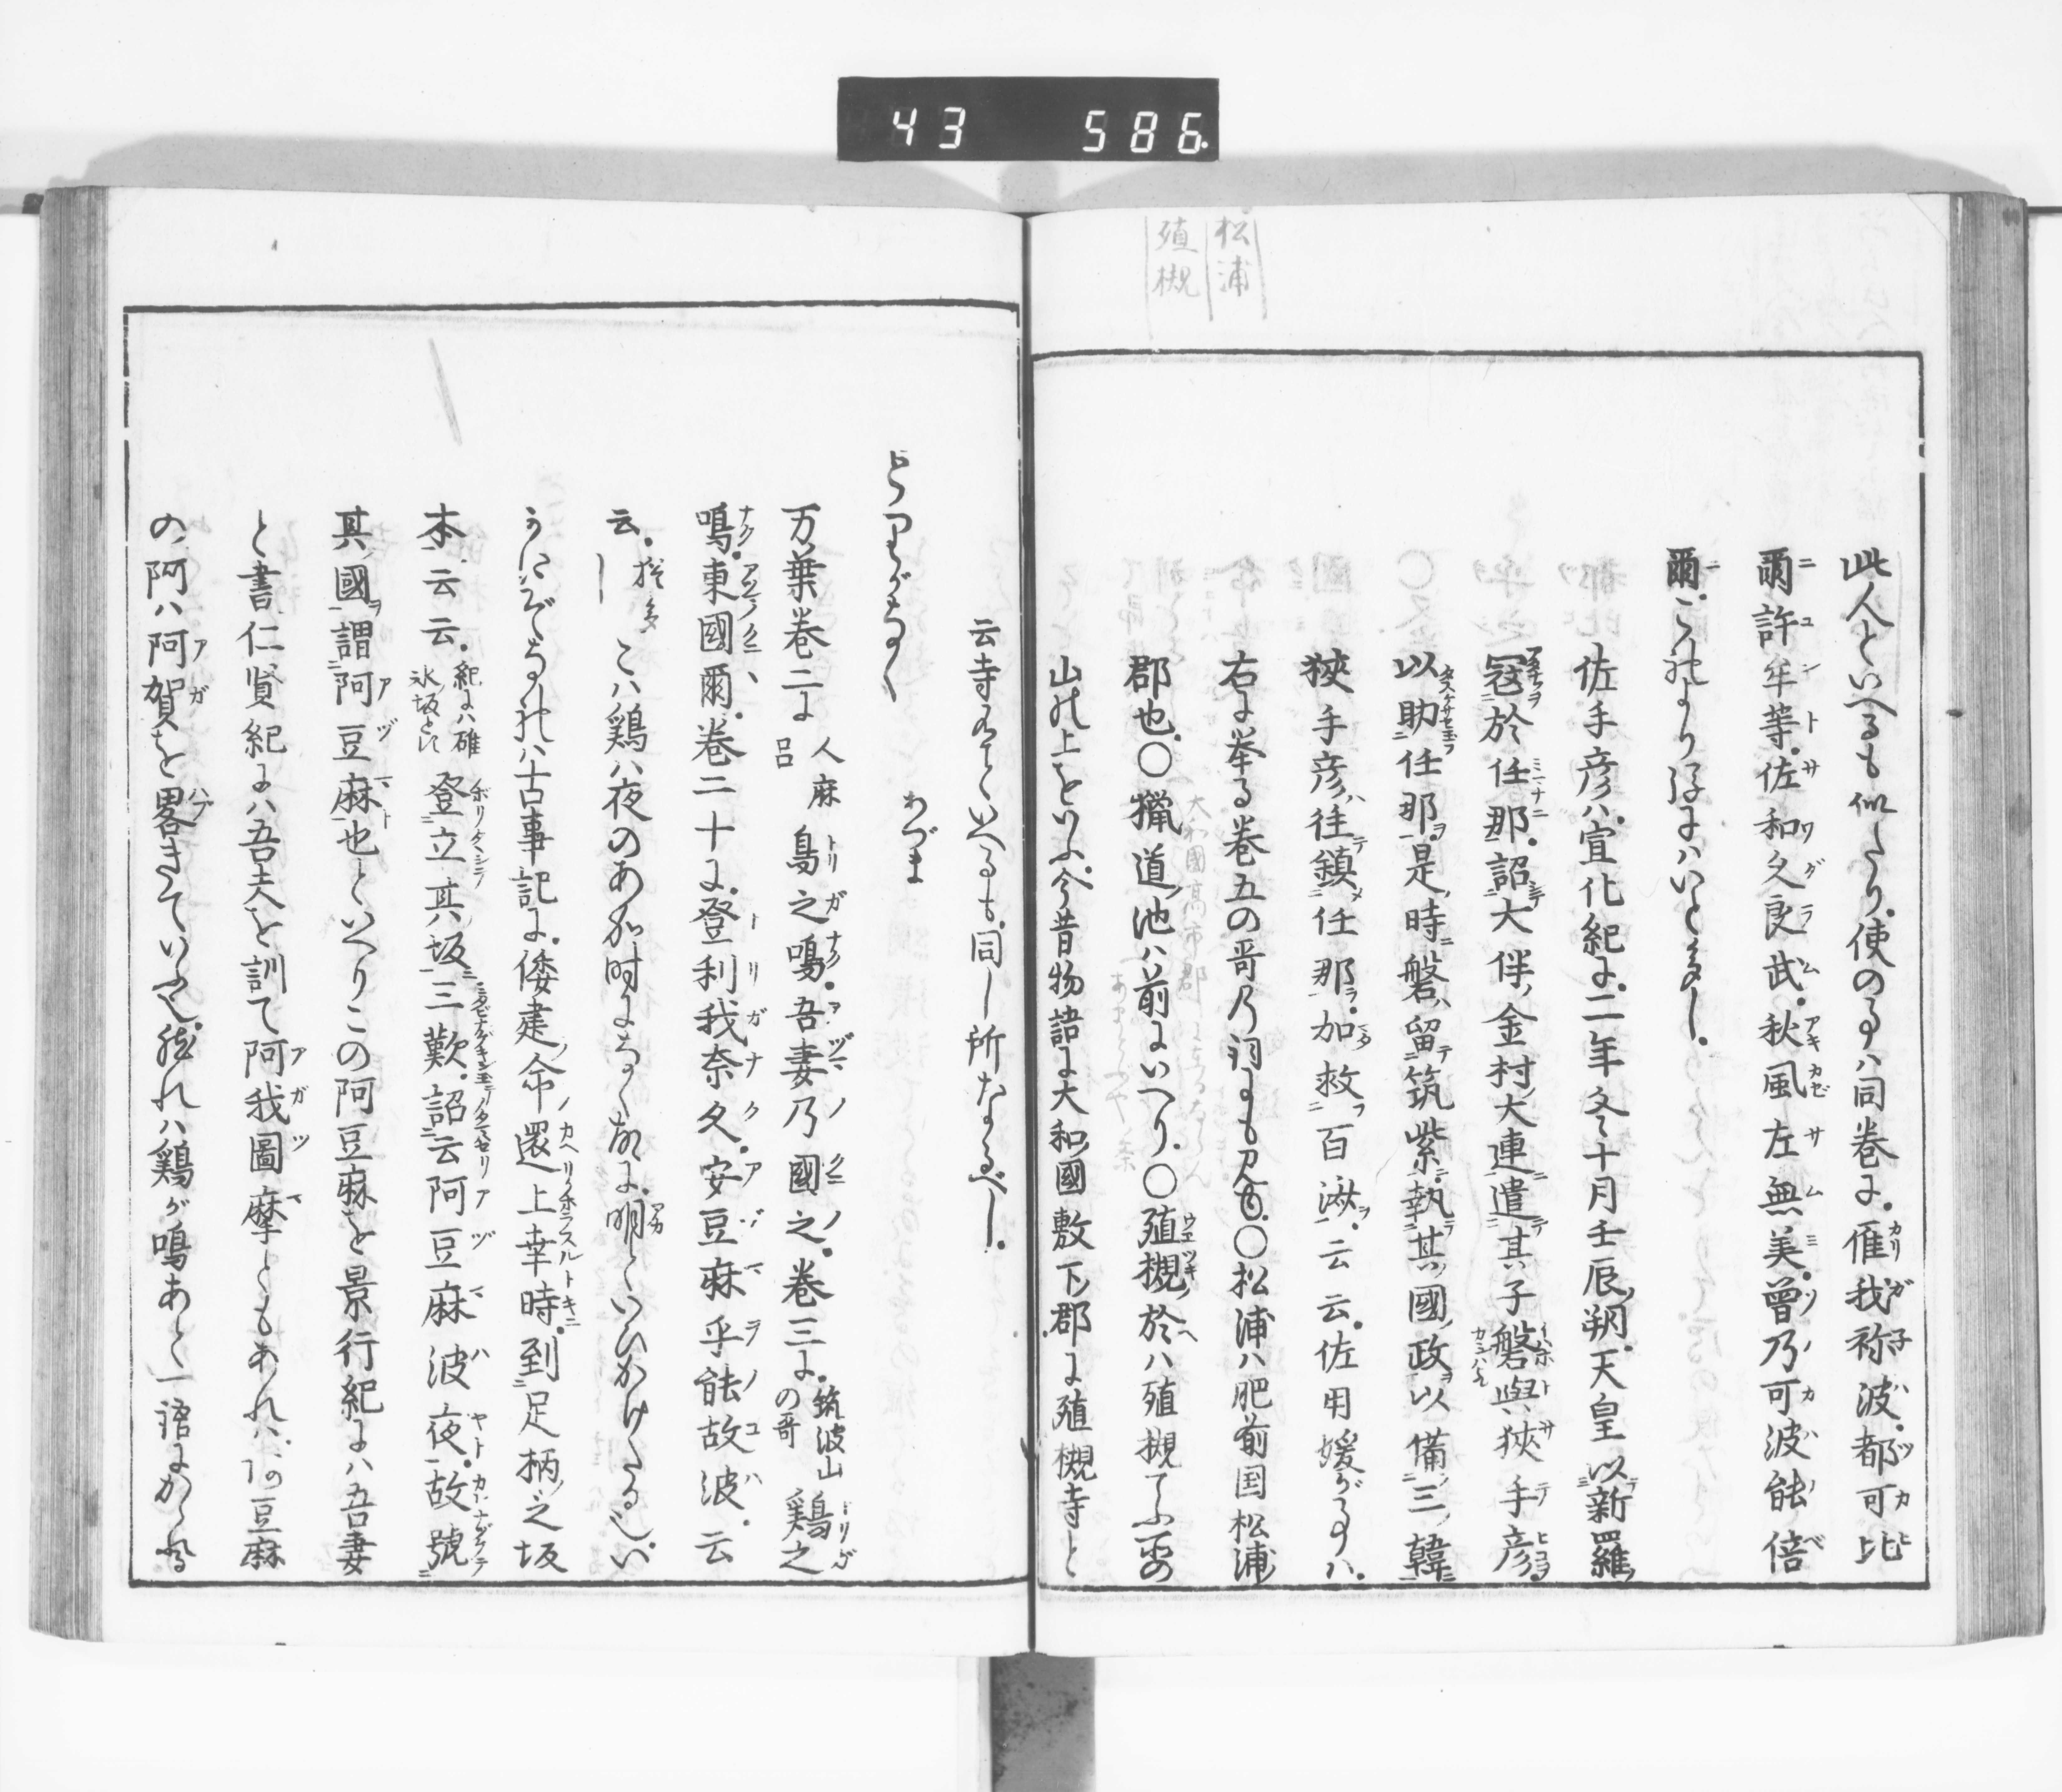 43 586
松浦
殖槻
此人といへるも似たり。使のるハ同巻に。雁我祢波。都可比
爾許牟等。佐和久良武。秋風左無美。曽乃可波能倍
爾。これより後にハいと多し。
佐手彦ハ。宣化紀に。二年冬十月壬辰朔。天皇以新羅
冦於任那。詔大伴金村大連遣其子磐與狭手彦。
以助任那。是時磐留筑紫。執其國政。以備三韓。
狭手彦往鎮任那。加救百濟。云云。佐用媛がるハ。
右に挙る巻五の哥乃詞にも見ゆ。〇松浦ハ肥前国松浦
郡也。〇獵道池ハ前にいへり。〇殖槻於ハ殖槻てふ
山の上をいふ。今昔物語に大和國敷下郡に殖槻寺と
云寺有といへるも。同し所なるべし。
とりがなく あづま
万葉巻二に 人麻呂 鳥之鳴。吾妻乃國之。巻三に。筑波山の哥 鶏之
鳴。東國爾。巻二十に。登利我奈久。安豆麻乎能故波。云
云。猶多し こハ鶏ハ夜のあか時になく故に。明といひかけたる也。
本云云。紀にハ碓氷坂とす 登立其坂三歎。詔云阿豆麻波夜。故號
其國謂阿豆麻也といへりこの阿豆麻を景行紀にハ吾妻
と書、仁賢紀にハ吾夫を訓て阿我圖摩ともあれハ。阿豆麻
の阿ハ阿賀を畧きていふ也。然れハ鶏が鳴あと一語にかゝる